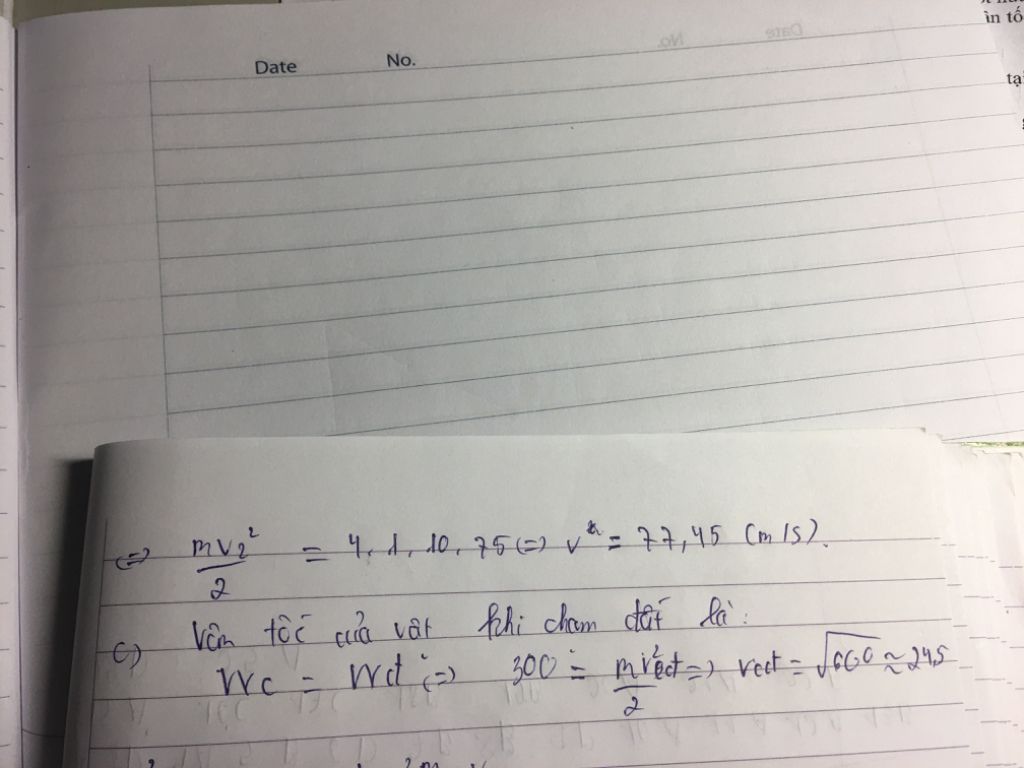 ìn tố
Date No.
tại
<=> mv₂²/2 = 4.1.10.75 <=> v = 77,45 (m/s).
c) Vận tốc của vật khi chạm đất là:
Wc = Wđ <=> 300 = mv²cđ/2 => vcđ = √600 ≈ 24,5